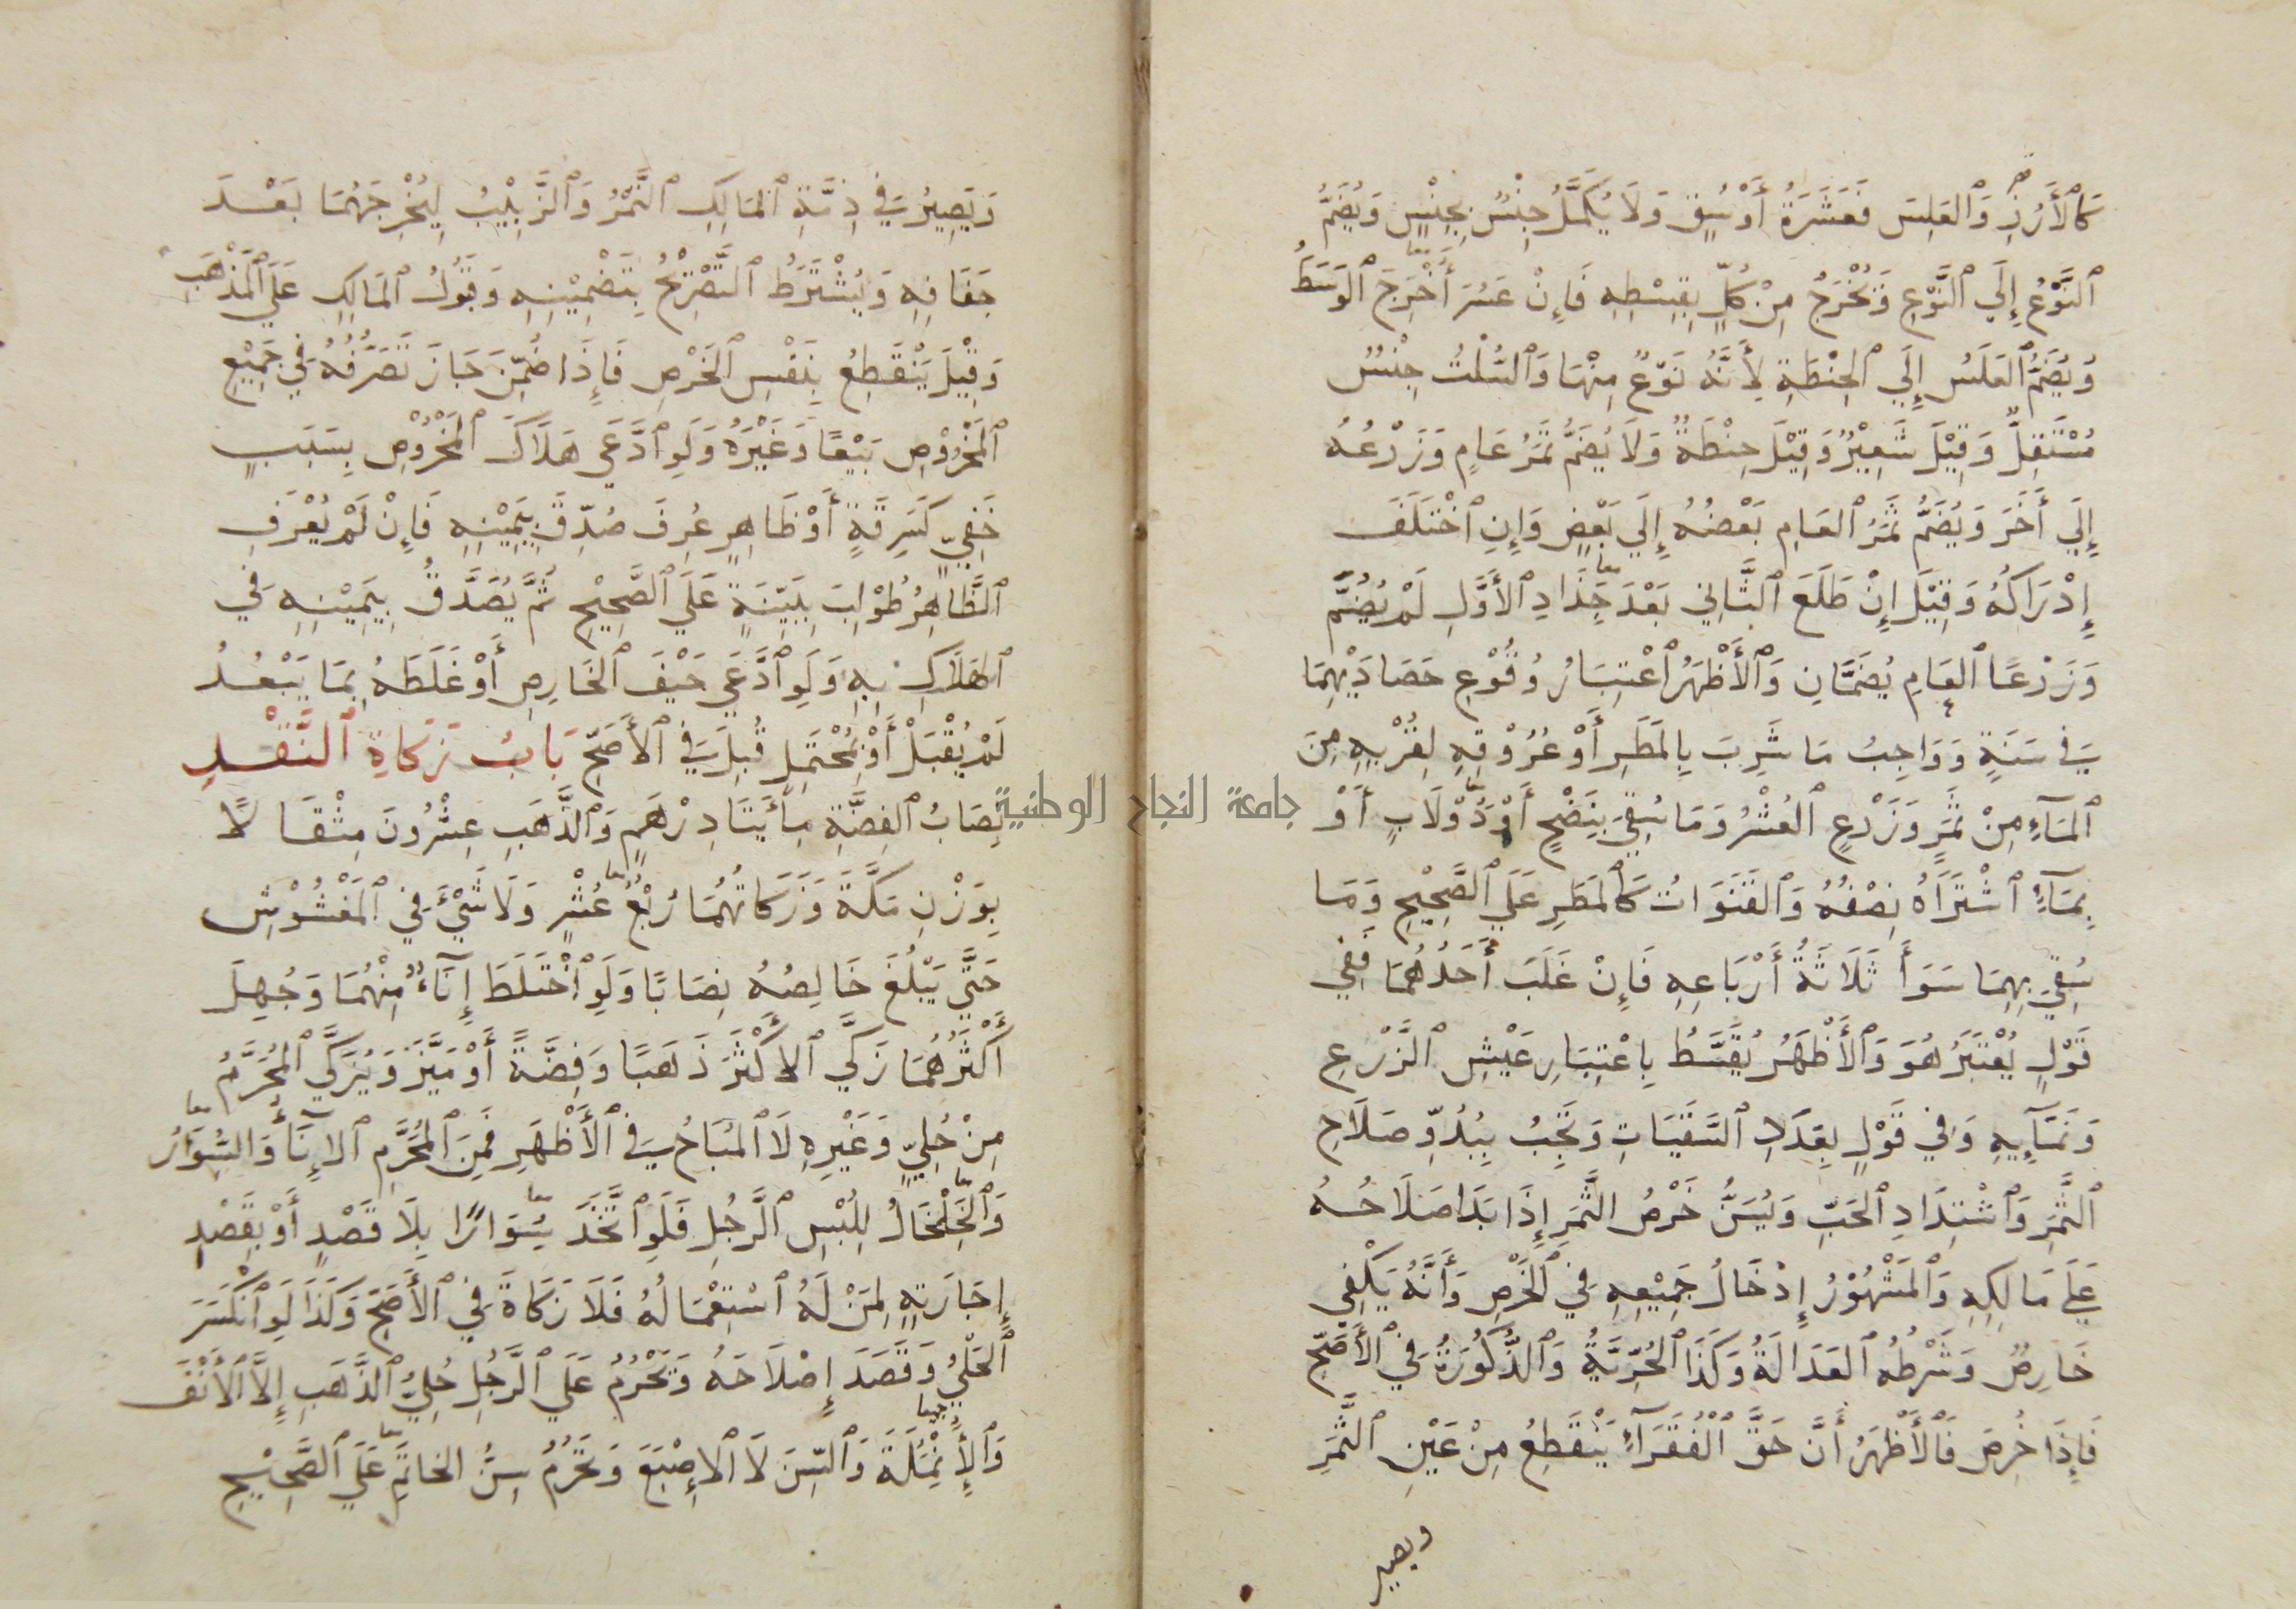 كَالأَرُزِّ وَالعَلَسِ فَعَشَرَةُ أَوْسُقٍ وَلَا يُكَمَّلُ جِنْسٌ بِجِنْسٍ وَيُضَمُّ
النَّوْعُ إِلَي النَّوْعِ وَيُخْرَجُ مِنْ كُلٍّ بِقِسْطِهِ فَإِنْ عَسُرَ أَخْرَجَ الوَسَطَ
وَيُضَمُّ العَلَسُ إِلَي الحِنْطَةِ لِأَنَّهُ نَوْعٌ مِنْهَا وَالسُّلْتُ جِنْسٌ
مُسْتَقِلٌّ وَقِيْلَ شَعِيْرٌ وَقِيْلَ حِنْطَةٌ وَلَا يُضَمُّ ثَمَرُ عَامٍ وَزَرْعُهُ
إِلَي أَخَرَ وَيُضَمُّ ثَمَرُ العَامِ بَعْضُهُ إِلَي بَعْضٍ وَإِنِ اخْتَلَفَ
إِدْرَاكُهُ وَقِيْلَ إِنْ طَلَعَ الثَّانِي بَعْدَ جَذَادِ الأَوَّلِ لَمْ يُضَمَّ
وَزَرْعَا العَامِ يُضَمَّانِ وَالأَظْهَرُ اعْتِبَارُ وُقُوْعِ حَصَادَيْهِمَا
فِي سَنَةٍ وَوَاجِبُ مَا شَرِبَ بِالمَطَرِ أَوْ عُرُوْقِهِ لِقُرْبِهِ مِنَ
المَآءِ مِنْ ثَمَرٍ وَزَرْعٍ العُشْرُ وَمَا سُقِيَ بِنَضْحٍ أَوْ دُوْلَابٍ أَوْ
بِمَآءٍ اشْتَرَاهُ نِصْفُهُ وَالقَنَوَاتُ كَالْمَطَرِ عَلَي الصَّحِيْحِ وَمَا
سُقِيَ بِهِمَا سَوَأً ثَلَاثَةُ أَرْبَاعِهِ فَإِنْ غَلَبَ أَحَدُهُمَا فَفِي
قَوْلٍ يُعْتَبَرُ هُوَ وَالأَظْهَرُ يُقَسَّطُ بِاعْتِبَارِ عَيْشِ الزَّرْعِ
وَنَمَآئِهِ وَفِي قَوْلٍ بِعَدَدِ السَّقَيَاتِ وَتَجِبُ بِبُدُوِّ صَلَاحِ
الثَّمَرِ وَاشْتِدَادِ الحَبِّ وَيُسَنُّ خَرْصُ الثَّمَرِ إِذَا بَدَا صَلَاحُهُ
عَلَي مَالِكِهِ وَالمَشْهُوْرُ إِدْخَالُ جَمِيْعِهِ فِي الخَرْصِ وَأَنَّهُ يَكْفِي
خَارِصٌ وَشَرْطُهُ العَدَالَةُ وَكَذَا الحُرِّيَّةُ وَالذُّكُوْرَةُ فِي الأَصَحِّ
فَإِذَا خُرِصَ فَالأَظْهَرُ أَنَّ حَقَّ الْفُقَرَآءِ يَنْقَطِعُ مِنْ عَيْنِ الثَّمَرِ
ويصير
وَيَصِيْرُ فِي ذِمَّةِ المَالِكِ التَّمْرُ وَالزَّبِيْبُ لِيُخْرِجَهُمَا بَعْدَ
جَفَافِهِ وَيُشْتَرَطُ التَّصْرِيْحُ بِتَضْمِيْنِهِ وَقَبُوْلُ المَالِكِ عَلَي المَذْهَبِ
وَقِيْلَ يَنْقَطِعُ بِنَفْسِ الخَرْصِ فَإِذَا ضُمِّنَ جَازَ تَصَرُّفُهُ فِي جَمِيْعِ
المَخْرُوْصِ بَيْعًا وَغَيْرَهُ وَلَوِ ادَّعَي هَلَاكَ المَخْرُوْصِ بِسَبَبٍ
خَفِيٍّ كَسَرِقَةٍ أَوْ ظَاهِرٍ عُرِفَ صُدِّقَ بِيَمِيْنِهِ فَإِنْ لَمْ يُعْرَفِ
الظَّاهِرُ طُوْلِبَ بِبَيِّنَةٍ عَلَي الصَّحِيْحِ ثُمَّ يُصَدَّقُ بِيَمِيْنِهِ فِي
الهَلَاكِ بِهِ وَلَوِ ادَّعَي حَيْفَ الخَارِصِ أَوْ غَلَطَهُ بِمَا يَبْعُدُ
لَمْ يُقْبَلْ أَوْ بِمُحْتَمِلٍ قُبِلَ فِي الأَصَحِّ بَابُ زَكَاةِ النَّقْدِ
نِصَابُ الفِضَّةِ مِأَيْتَا دِرْهَمٍ وَالذَّهَبِ عِشْرُونَ مِثْقَالًا
بِوَزْنِ مَكَّةَ وَزَكَاتُهُمَا رُبْعُ عُشْرٍ وَلَا شَيْءَ فِي المَغْشُوْشِ
حَتَّي يَبْلُغَ خَالِصُهُ نِصَابًا وَلَوِ اخْتَلَطَ إِنَآءٌ مِنْهُمَا وَجُهِلَ
أَكْثَرُهُمَا زَكَّي الأَكْثَرَ ذَهَبًا وَفِضَّةً أَوْ مَيَّزَ وَيُزَكَّي المُحَرَّمُ
مِنْ حُلِيٍّ وَغَيْرِهِ لَا المُبَاحُ فِي الأَظْهَرِ فَمِنَ المُحَرَّمِ الاِنَآُ وَالسُّوَارُ
وَالْخَلْخَالُ لِلُبْسِ الرَّجُلِ فَلَوِ اتَّخَذَ سُِوَارًا بِلَا قَصْدٍ أَوْ بِقَصْدِ
إِجَارَتِهِ لِمَنْ لَهُ اسْتِعْمَالُهُ فَلَا زَكَاةَ فِي الأَصَحِّ وَكَذَا لَوِ انْكَسَرَ
الحَلْيُ وَقَصَدَ إِصْلَاحَهُ وَيَحْرُمُ عَلَي الرَّجُلِ حُلِيُّ الذَّهَبِ إِلَّا الأَنْفَ
وَالأَُنْمُِلَةَ وَالسِّنَ لَا الاِصْبَعَ وَيَحْرُمُ سِنُّ الخاتَِمِ عَلَي الصَّحِيْحِ
جامعة النجاح الوطنية